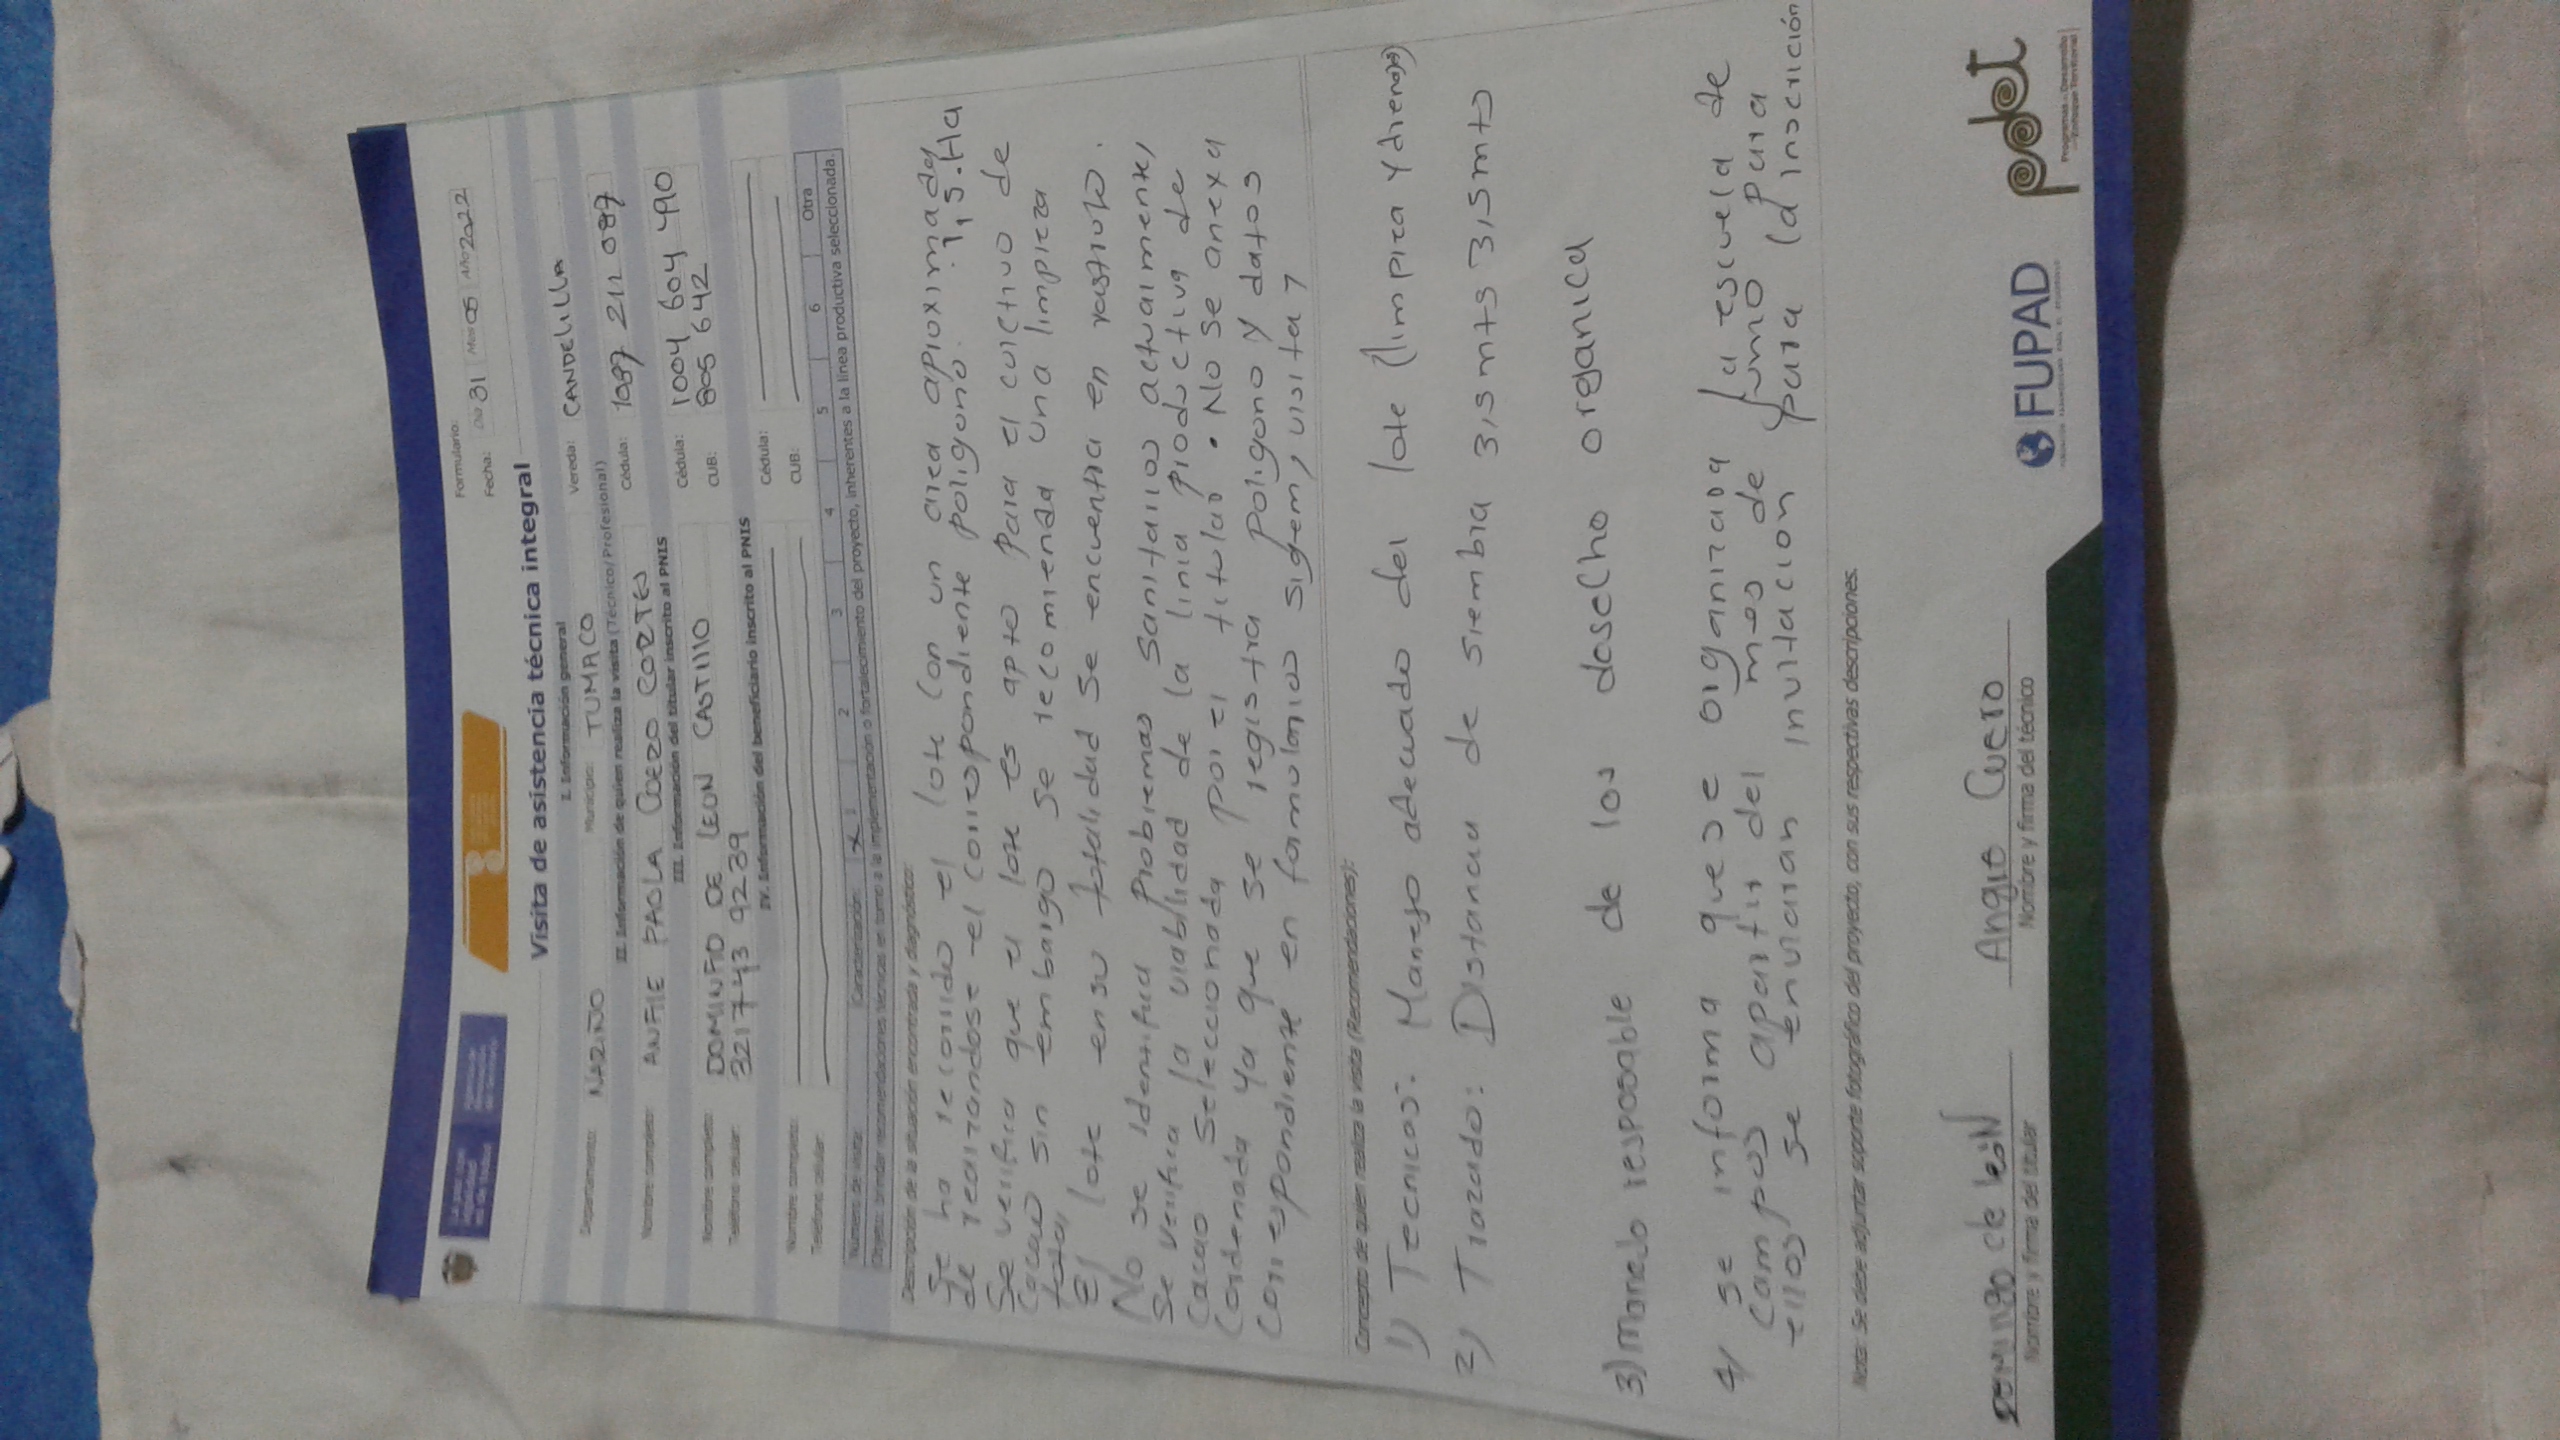 Formulario:
Fecha: Día 31 Mes 05 Año 2022
Visita de asistencia técnica integral
I. Información general
Departamento: NARIÑO Municipio: TUMACO Vereda: CANDELILLA
II. Información de quien realiza la visita (Técnico/Profesional)
Nombre completo: ANFIE PAOLA COERO CORTES Cédula: 1087 211 087
III. Información del titular inscrito al PNIS
Nombre completo: DOMINFIO DE LEON CASTILLO Cédula: 1004 604 490
Teléfono celular: 321743 9239 CUB: 805 642
IV. Información del beneficiario inscrito al PNIS
Nombre completo: Cédula:
Teléfono celular: CUB:
Número de visita: Caracterización: X 1 2 3 4 5 6 Otra
Objeto: brindar recomendaciones técnicas en torno a la implementación o fortalecimiento del proyecto, inherentes a la línea productiva seleccionada.
Descripción de la situación encontrada y diagnóstico:
Se ha recorrido el lote con un area aproximada
de realizandose el correspondiente poligono. 1,5.Ha
Se verifica que el lote es apto para el cultivo de
cacao sin embargo se recomienda una limpieza
total
El lote en su totalidad se encuentra en rastrojo.
No se identifica problemas sanitarios actualmente,
Se verifica la viabilidad de la linia productiva de
Cacao Seleccionada por el titular. No se anexa
Cordenada ya que se registra poligono y datos
correspondiente en formularios sigtem, visita 7
Concepto de quien realiza la visita (Recomendaciones):
1) Tecnicas: Manejo adecuado del lote (limpieza y drenajes)
2) Trazado: Distancia de siembra 3,5 mts 3,5mts
3) Manelo resposable de los desecho oreganica
4) se informa que se organizara la escuela de
campos apartir del mes de junio para
ellos se enviaran invitacion para la inscrición
Nota: Se debe adjuntar soporte fotográfico del proyecto, con sus respectivas descripciones.
DOMINGO de león
Nombre y firma del titular
Angie Cuero
Nombre y firma del técnico
FUPAD
pdet
Programas de Desarrollo
con Enfoque Territorial